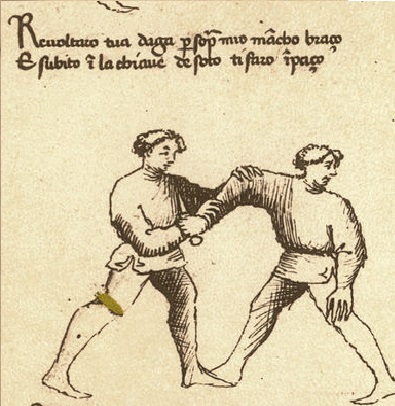 Revoltaro tua daga p sop mio mācho braço
E subito ī la chiave de soto ti faro īpaço